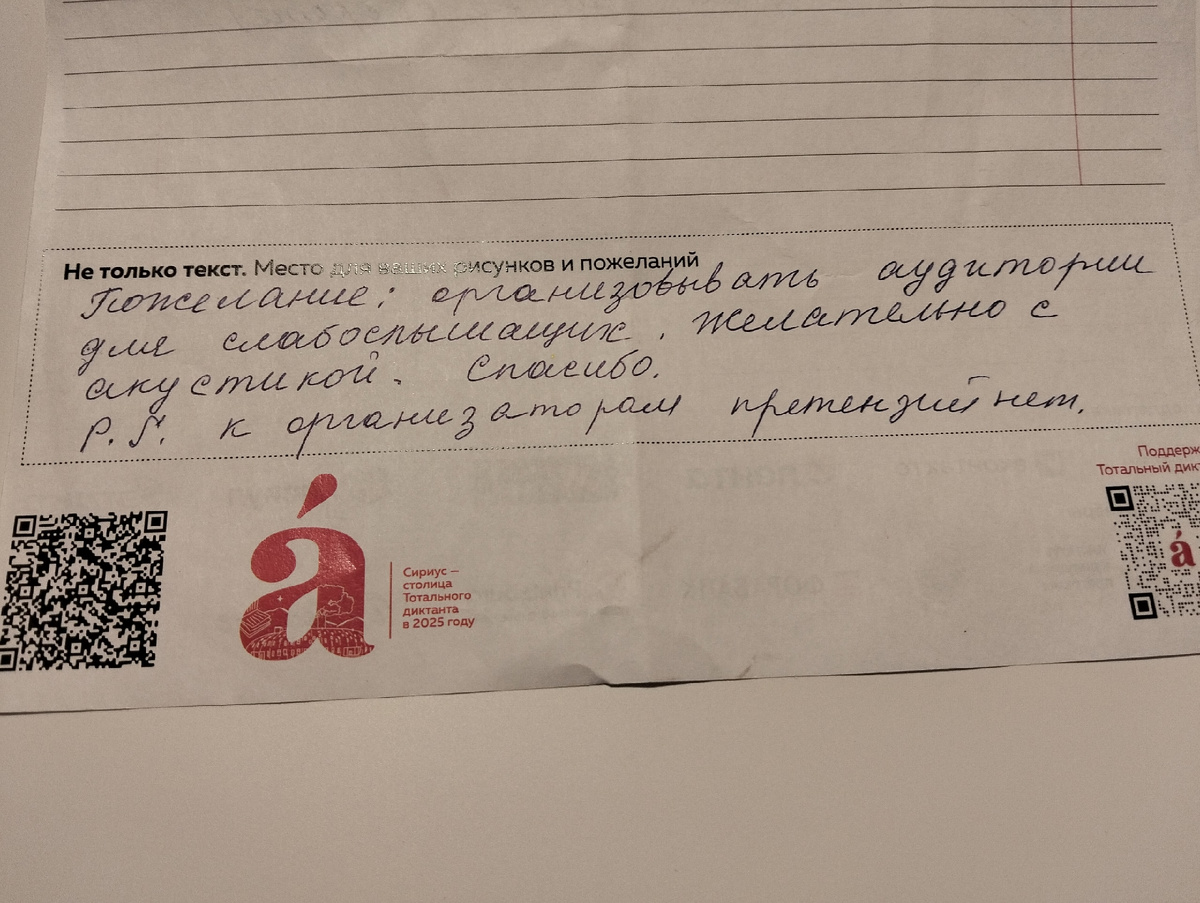 Не только текст. Место для ваших рисунков и пожеланий
Пожелание: организовывать аудитории
для слабослышащих. Желательно с
акустикой. Спасибо.
P.S. к организаторам претензий нет.
Поддерж
Тотальный дикт
á
á
Сириус –
столица
Тотального
диктанта
в 2025 году